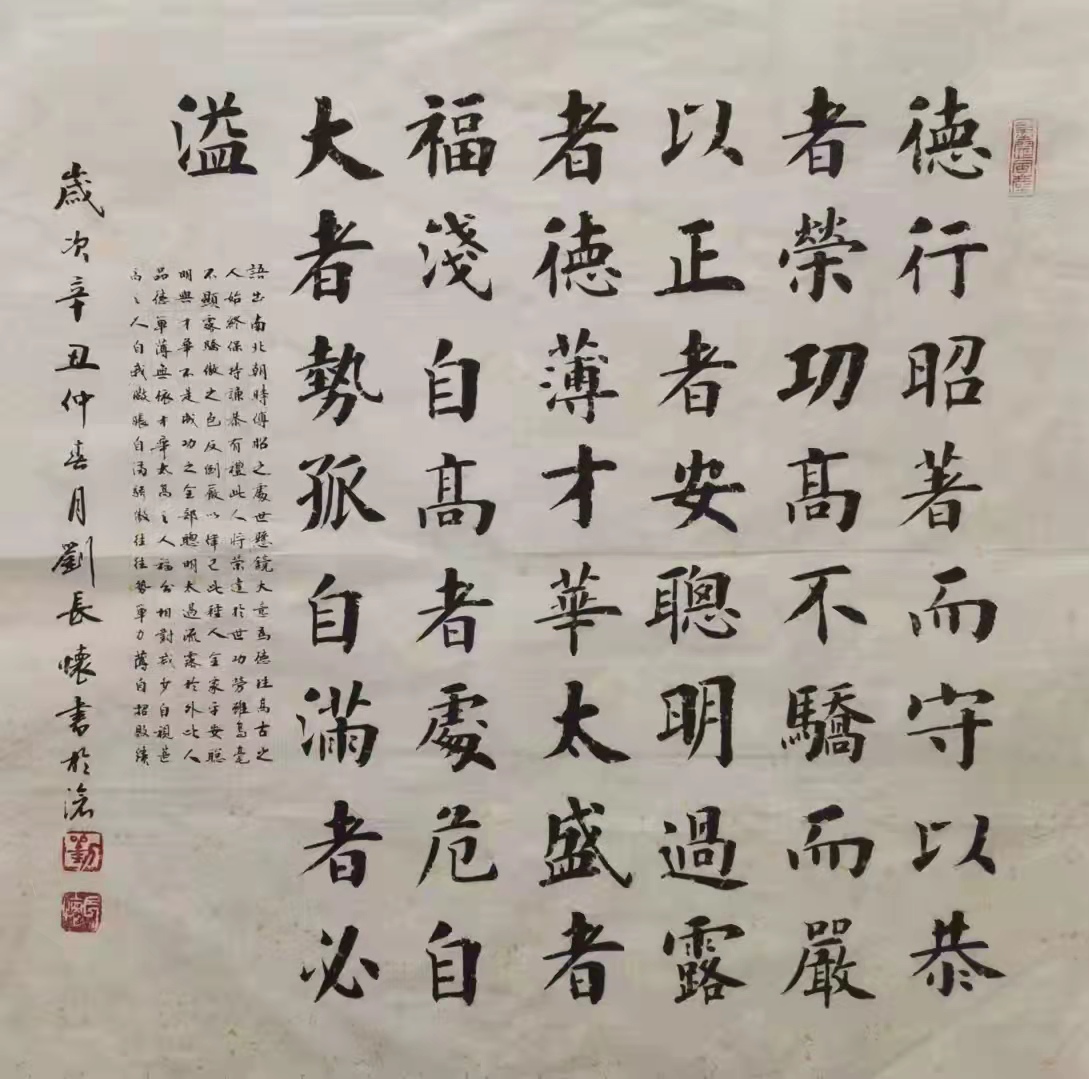 德行昭著而守以恭
者榮功高不驕而嚴
以正者安聰明過露
者德薄才華太盛者
福淺自高者處危自
大者勢孤自滿者必
溢
語出南北朝時傅昭之處世懸鏡大意爲德性高古之
人始終保持謙恭有禮此人將榮達於世功勞雖高毫
不顯露驕傲之色反倒嚴以律己此種人全家平安聰
明與才華不是成功之全部聰明太過流露於外此人
品德單薄無依才華太高之人福分相對減少自視甚
高之人自我脹自滿驕傲往往勢單力薄自招敗績
歲次辛丑仲春月劉長懷書於滄
劉
長懷